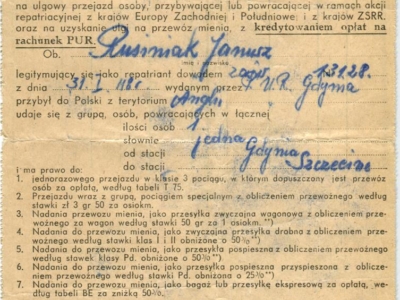 na ulgowy przejazd osoby, przybywającej lub powracającej w ramach akcji
repatriacyjnej z krajów Europy Zachodniej i Południowej i z krajów ZSRR.
oraz na uzyskanie ulg na przewóz mienia, z kredytowaniem opłat na
rachunek PUR.
Ob. Rusiniak Janusz
imię i nazwisko
legitymujący się jako repatriant dowodem zaśw. Nr. 13128.
z dnia 31. I 48r. wydanym przez P. U. R. Gdynia
przybył do Polski z terytorium Anglii
udaje się z grupą osób, powracających w łącznej
ilości osób 1
słownie jedna
od stacji Gdynia
do stacji Szczecin
i ma prawo do:
1. jednorazowego przejazdu w klasie 3 pociągu, w którym dopuszczony jest przewóz
osób za opłatą, według tabeli T 75.
2. Przejazdu wraz z grupą, pociągiem specjalnym z obliczeniem przewoźnego według
stawki zł 3 gr 50 za 1 osiokm.
3. Nadania do przewozu mienia, jako przesyłka zwyczajna wagonowa z obliczeniem prze-
woźnego za wagon według stawki 50 gr za 1 osiokm. **)
4. Nadania do przewozu mienia, jako przesyłka zwyczajna drobna z obliczeniem prze-
woźnego według stawek klas I i II obniżone o 50% **)
5. Nadania do przewozu mienia, jako przesyłka pospieszna z obliczeniem przewoźnego
według stawek klasy Pd. obniżone o 50% **)
6. Nadania do przewozu mienia, jako przesyłka pospieszna przyspieszona z oblicze-
niem przewoźnego według stawki Pd. obniżone o 25% **)
7. Nadania do przewozu mienia, jako bagaż lub przesyłkę ekspresową za opłatą, we-
dług tabeli BE za zniżką 50%.